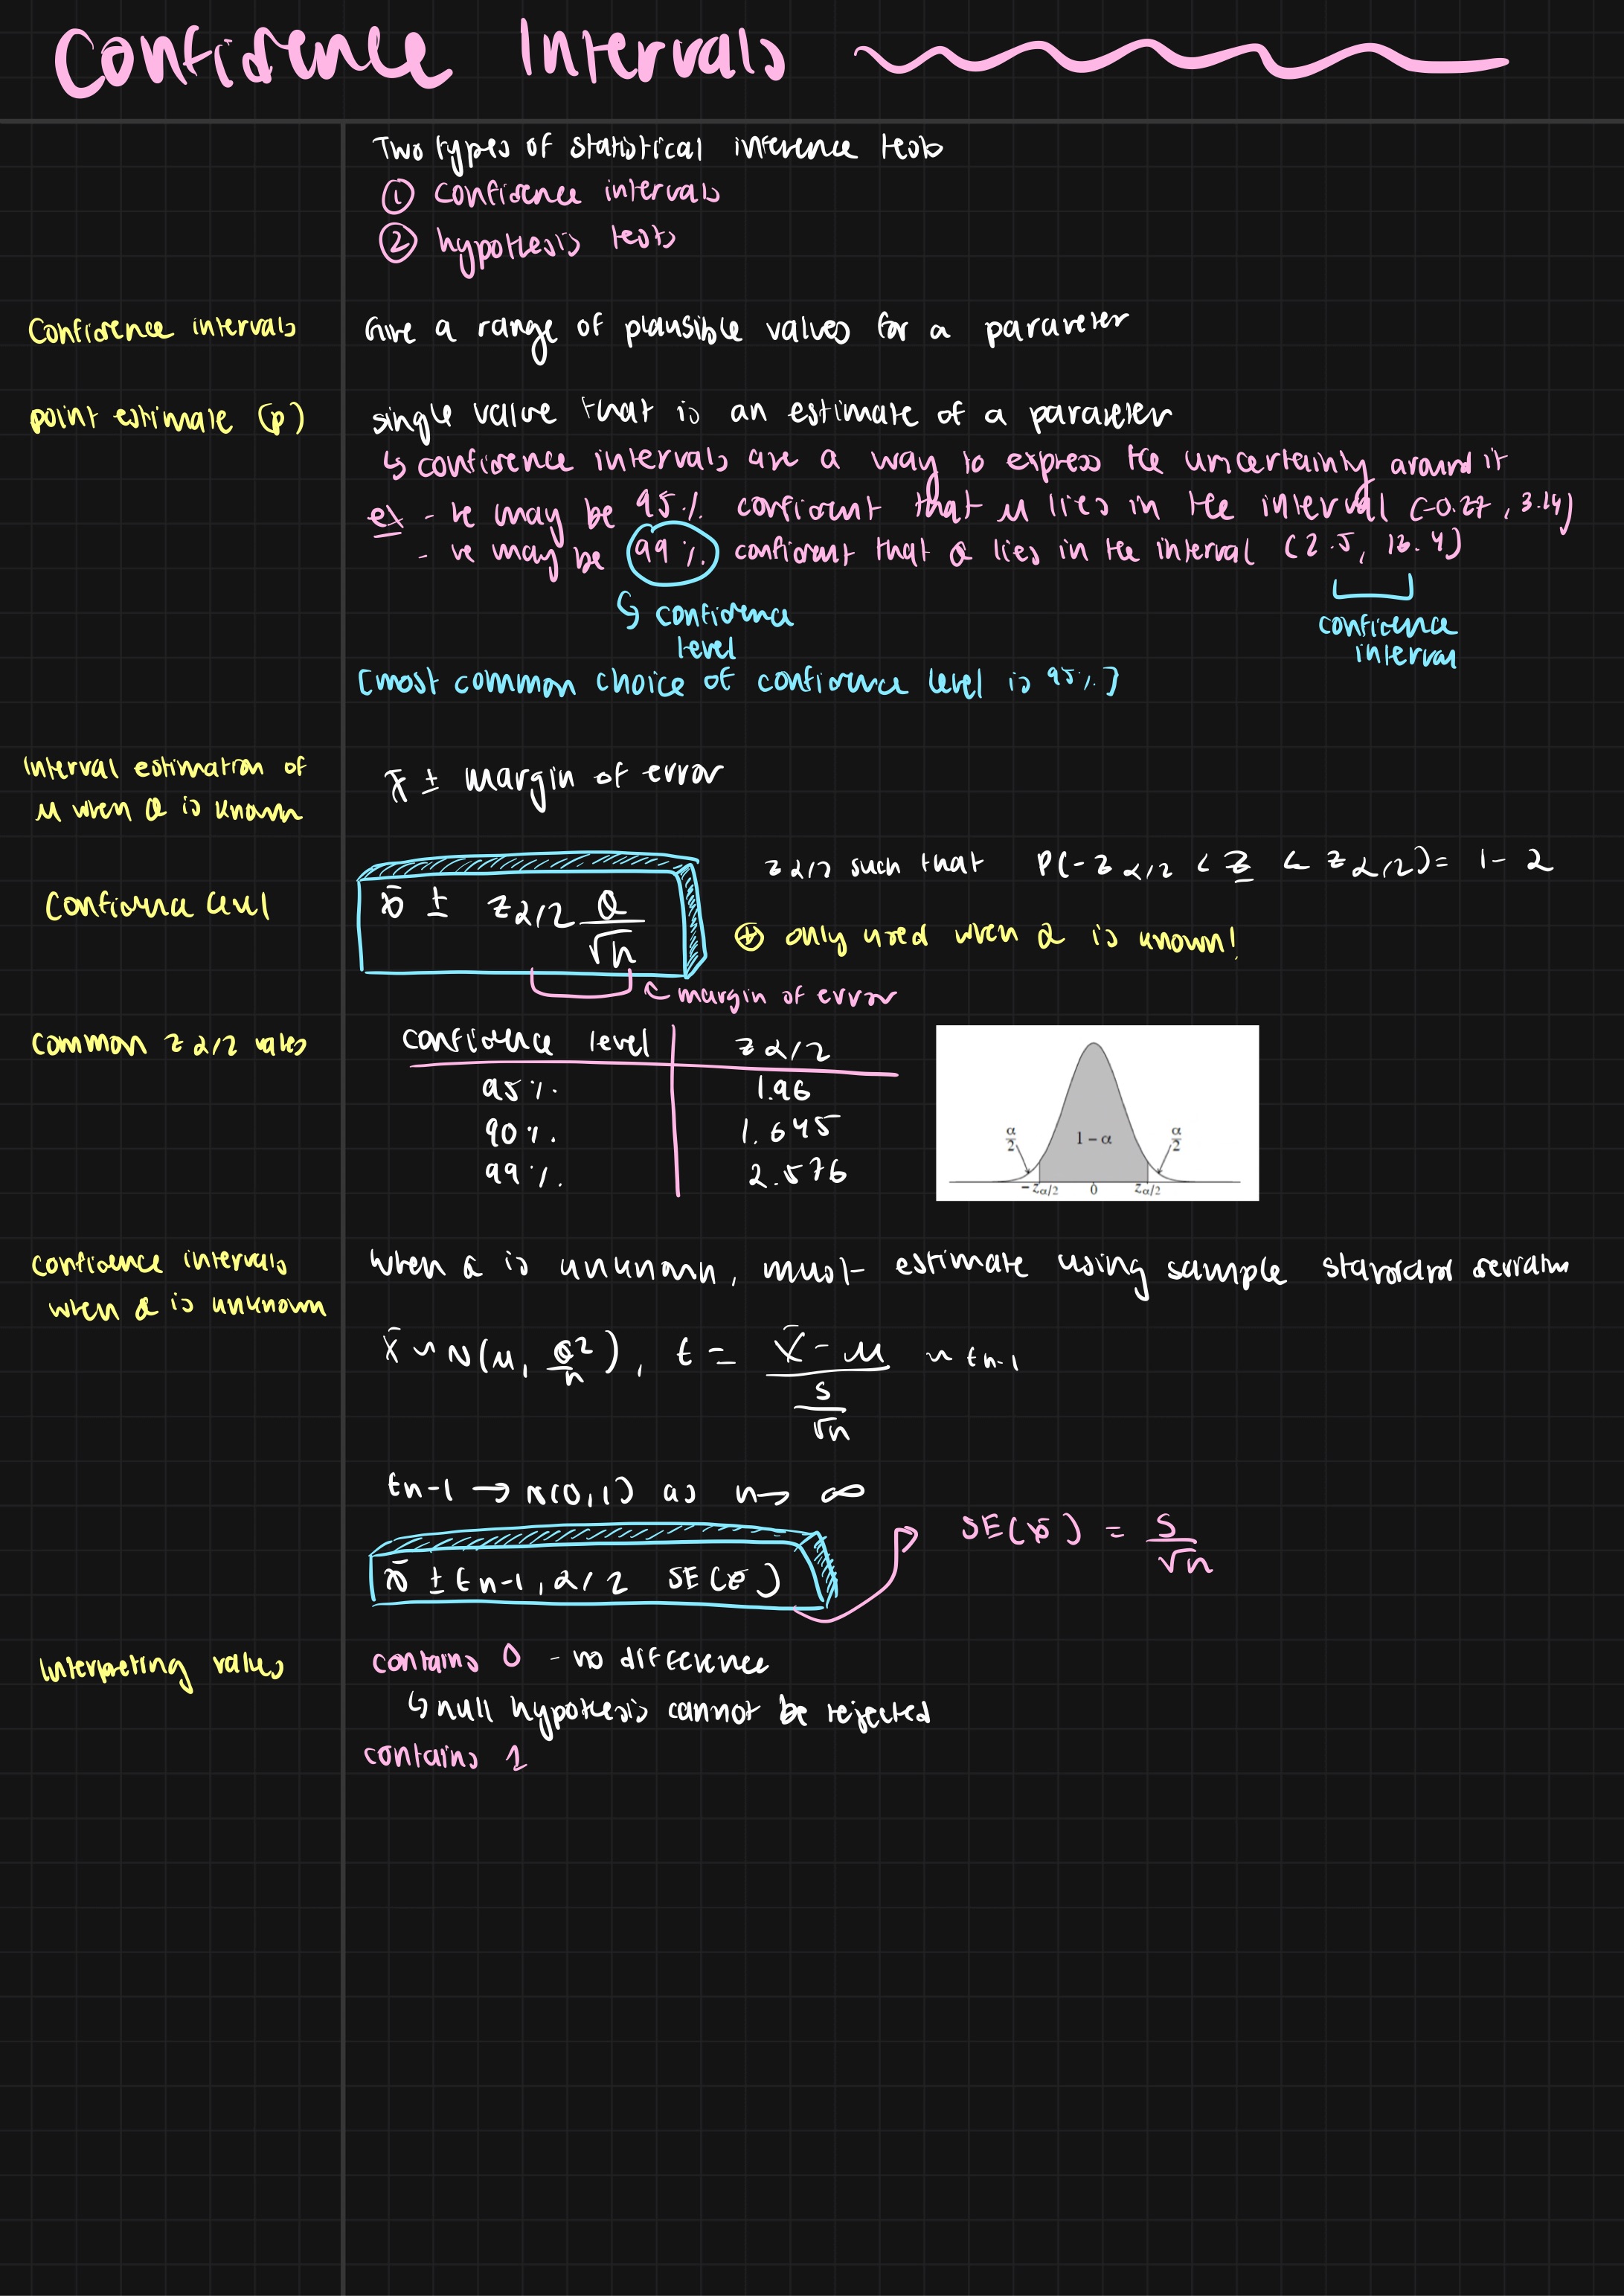 Confidence Intervals
Two types of statistical inference tests
① confidence intervals
② hypothesis tests
Confidence intervals
Give a range of plausible values for a parameter
point estimate (p)
single value that is an estimate of a parameter
↳ confidence intervals are a way to express the uncertainty around it
ex - we may be 95% confident that μ lies in the interval (-0.27, 3.14)
- we may be 99% confident that σ lies in the interval (2.5, 13.4)
↳ confidence
level
confidence
interval
[most common choice of confidence level is 95%]
Interval estimation of
μ when σ is known
x̄ ± margin of error
z α/2 such that P(-z α/2 < z < z α/2) = 1 - α
Confidence level
x̄ ± z α/2 σ/√n
⊕ only used when σ is known!
margin of error
common z α/2 values
confidence level z α/2
95% 1.96
90% 1.645
99% 2.576
α/2 1 − α α/2
−zα/2 0 zα/2
confidence intervals
when σ is unknown
when σ is unknown, must estimate using sample standard deviation
x̄ ~ N(μ, σ²/n), t = (x̄ - μ)/(s/√n) ~ tn-1
tn-1 → N(0,1) as n → ∞
x̄ ± tn-1, α/2 SE(x̄)
SE(x̄) = s/√n
Interpreting values
contains 0 - no difference
↳ null hypothesis cannot be rejected
contains 1